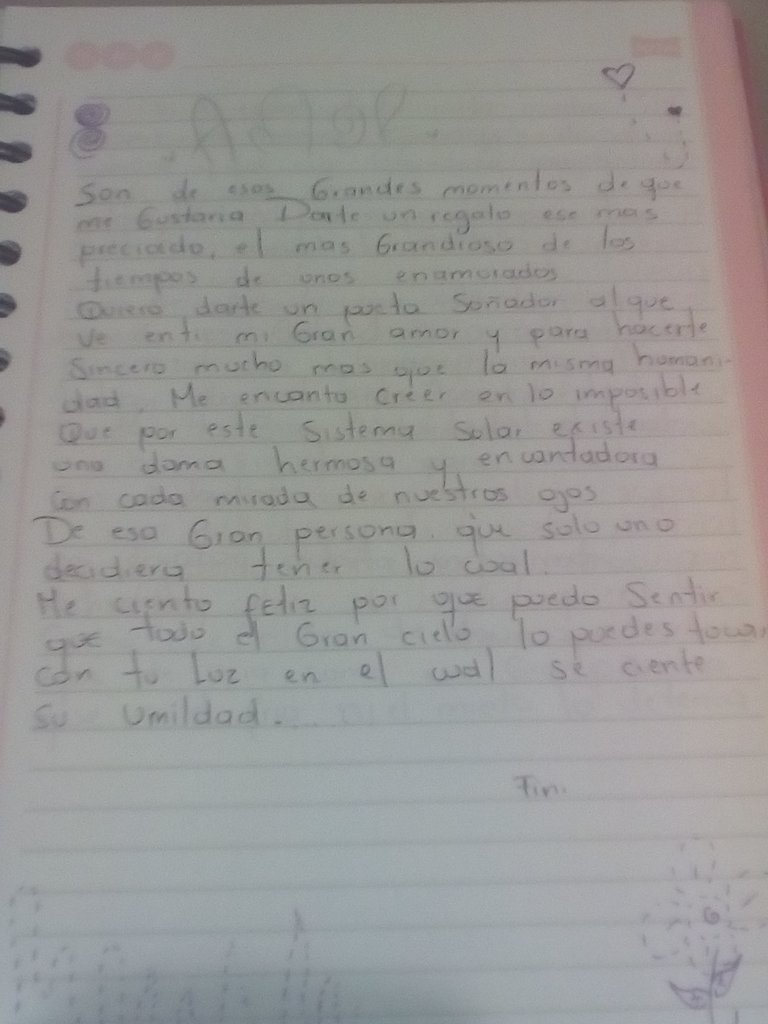 8
Amor
Son de esos Grandes momentos de que
me Gustaria Darte un regalo ese mas
preciado, el mas Grandioso de los
tiempos de unos enamorados
Quiero darte un poeta Soñador al que
ve en ti mi Gran amor y para hacerte
Sincero mucho mas que la misma humani-
dad. Me encanta creer en lo imposible
Que por este Sistema Solar existe
una dama hermosa y encantadora
Con cada mirada de nuestros ojos
De esa Gran persona que solo uno
decidiera tener lo cual.
Me ciento feliz por que puedo Sentir
que todo el Gran cielo lo puedes tocar
con tu Luz en el cual se ciente
su umildad...
Fin.